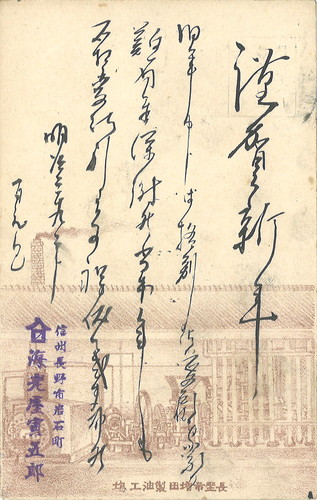 謹賀新年
旧年中は格別御愛顧を蒙
難有奉深謝候尚本年も
不相変御引立の程偏に奉希候
明治三十九年
一月元旦
信州長野市岩石町
海老屋五郎
長埜市増田製油工場